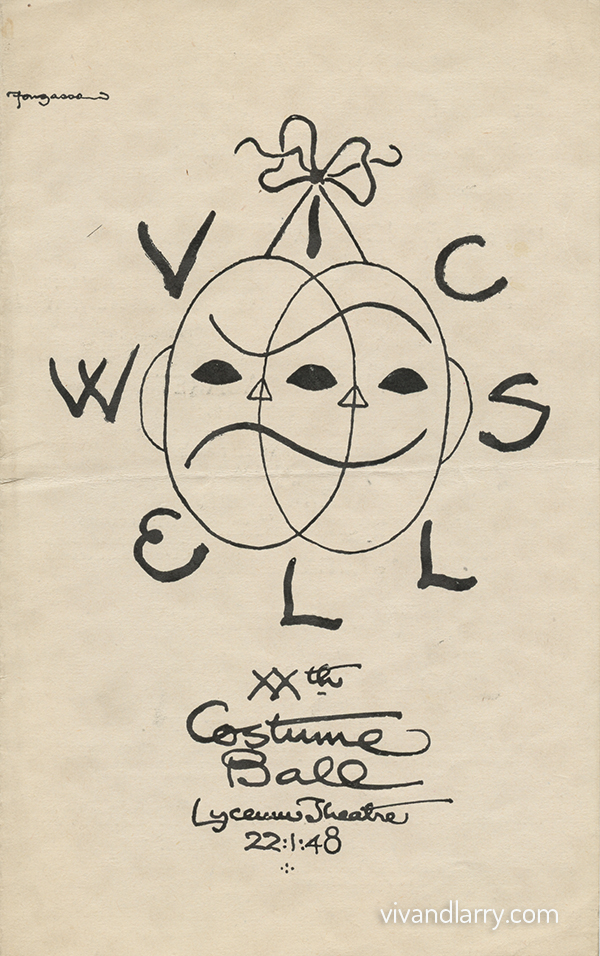 Fougasse
VIC
WELLS
XXth
Costume
Ball
Lyceum Theatre
22:1:48
vivandlarry.com